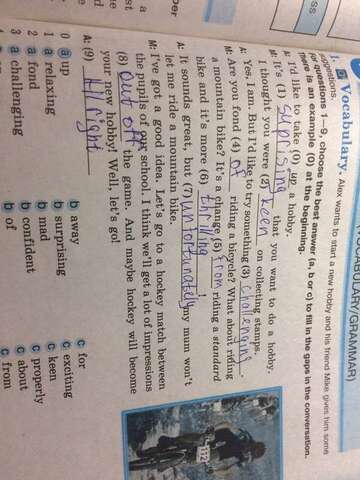 OCABULARY/GRAMMAR)
Vocabulary. Alex wants to start a new hobby and his friend Mike gives him some
suggestions.
For questions 1—9, choose the best answer (a, b or c) to fill in the gaps in the conversation.
There is an example (0) at the beginning.
A: I'd like to take (0) up a hobby.
M: It's (1) suprising that you want to do a hobby.
I thought you were (2) keen on collecting stamps.
A: Yes, I am. But I'd like to try something (3) challenging.
M: Are you fond (4) of riding a bicycle? What about riding
a mountain bike? It's a change (5) from riding a standard
bike and it's more (6) thrilling!
A: It sounds great, but (7) unfortunately my mum won't
let me ride a mountain bike.
M: I've got a good idea. Let's go to a hockey match between
the pupils of our school. I think we'll get a lot of impressions
(8) out of the game. And maybe hockey will become
your new hobby! Well, let's go!
A: (9) All right
0 a up b away c for
1 a relaxing b surprising c exciting
2 a fond b mad c keen
3 a challenging b confident c properly
b of c about
c from
112